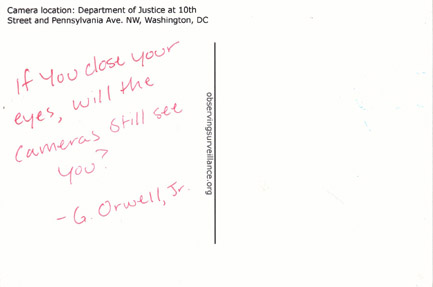 Camera location: Department of Justice at 10th
Street and Pennsylvania Ave. NW, Washington, DC
If you close your
eyes, will the
cameras still see
you?
- G. Orwell, Jr.
observingsurveillance.org